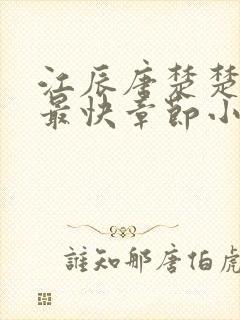 江辰唐楚楚
最快章节小
誰知那唐伯虎